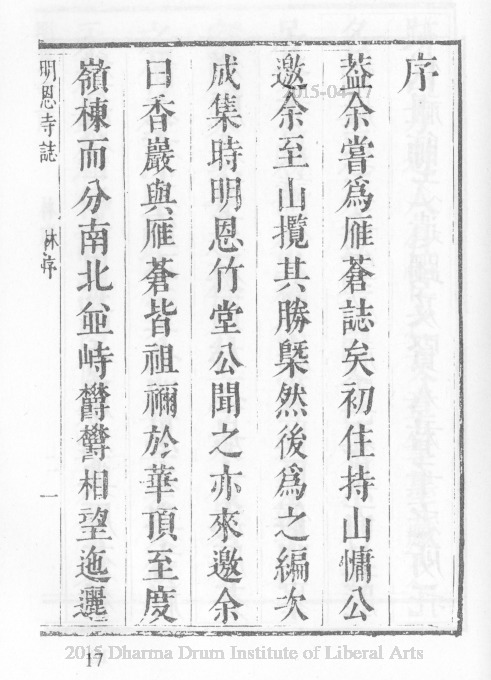 序
蓋余嘗爲雁蒼誌矣初住持山慵公
邀余至山攬其勝槩然後爲之編次
成集時明恩竹堂公聞之亦來邀余
曰香巖與雁蒼皆祖禰於華頂至度
嶺棟而分南北並峙欝欝相望迤邐
明恩寺誌 林序 一
2015-04-17
17
2015 Dharma Drum Institute of Liberal Arts